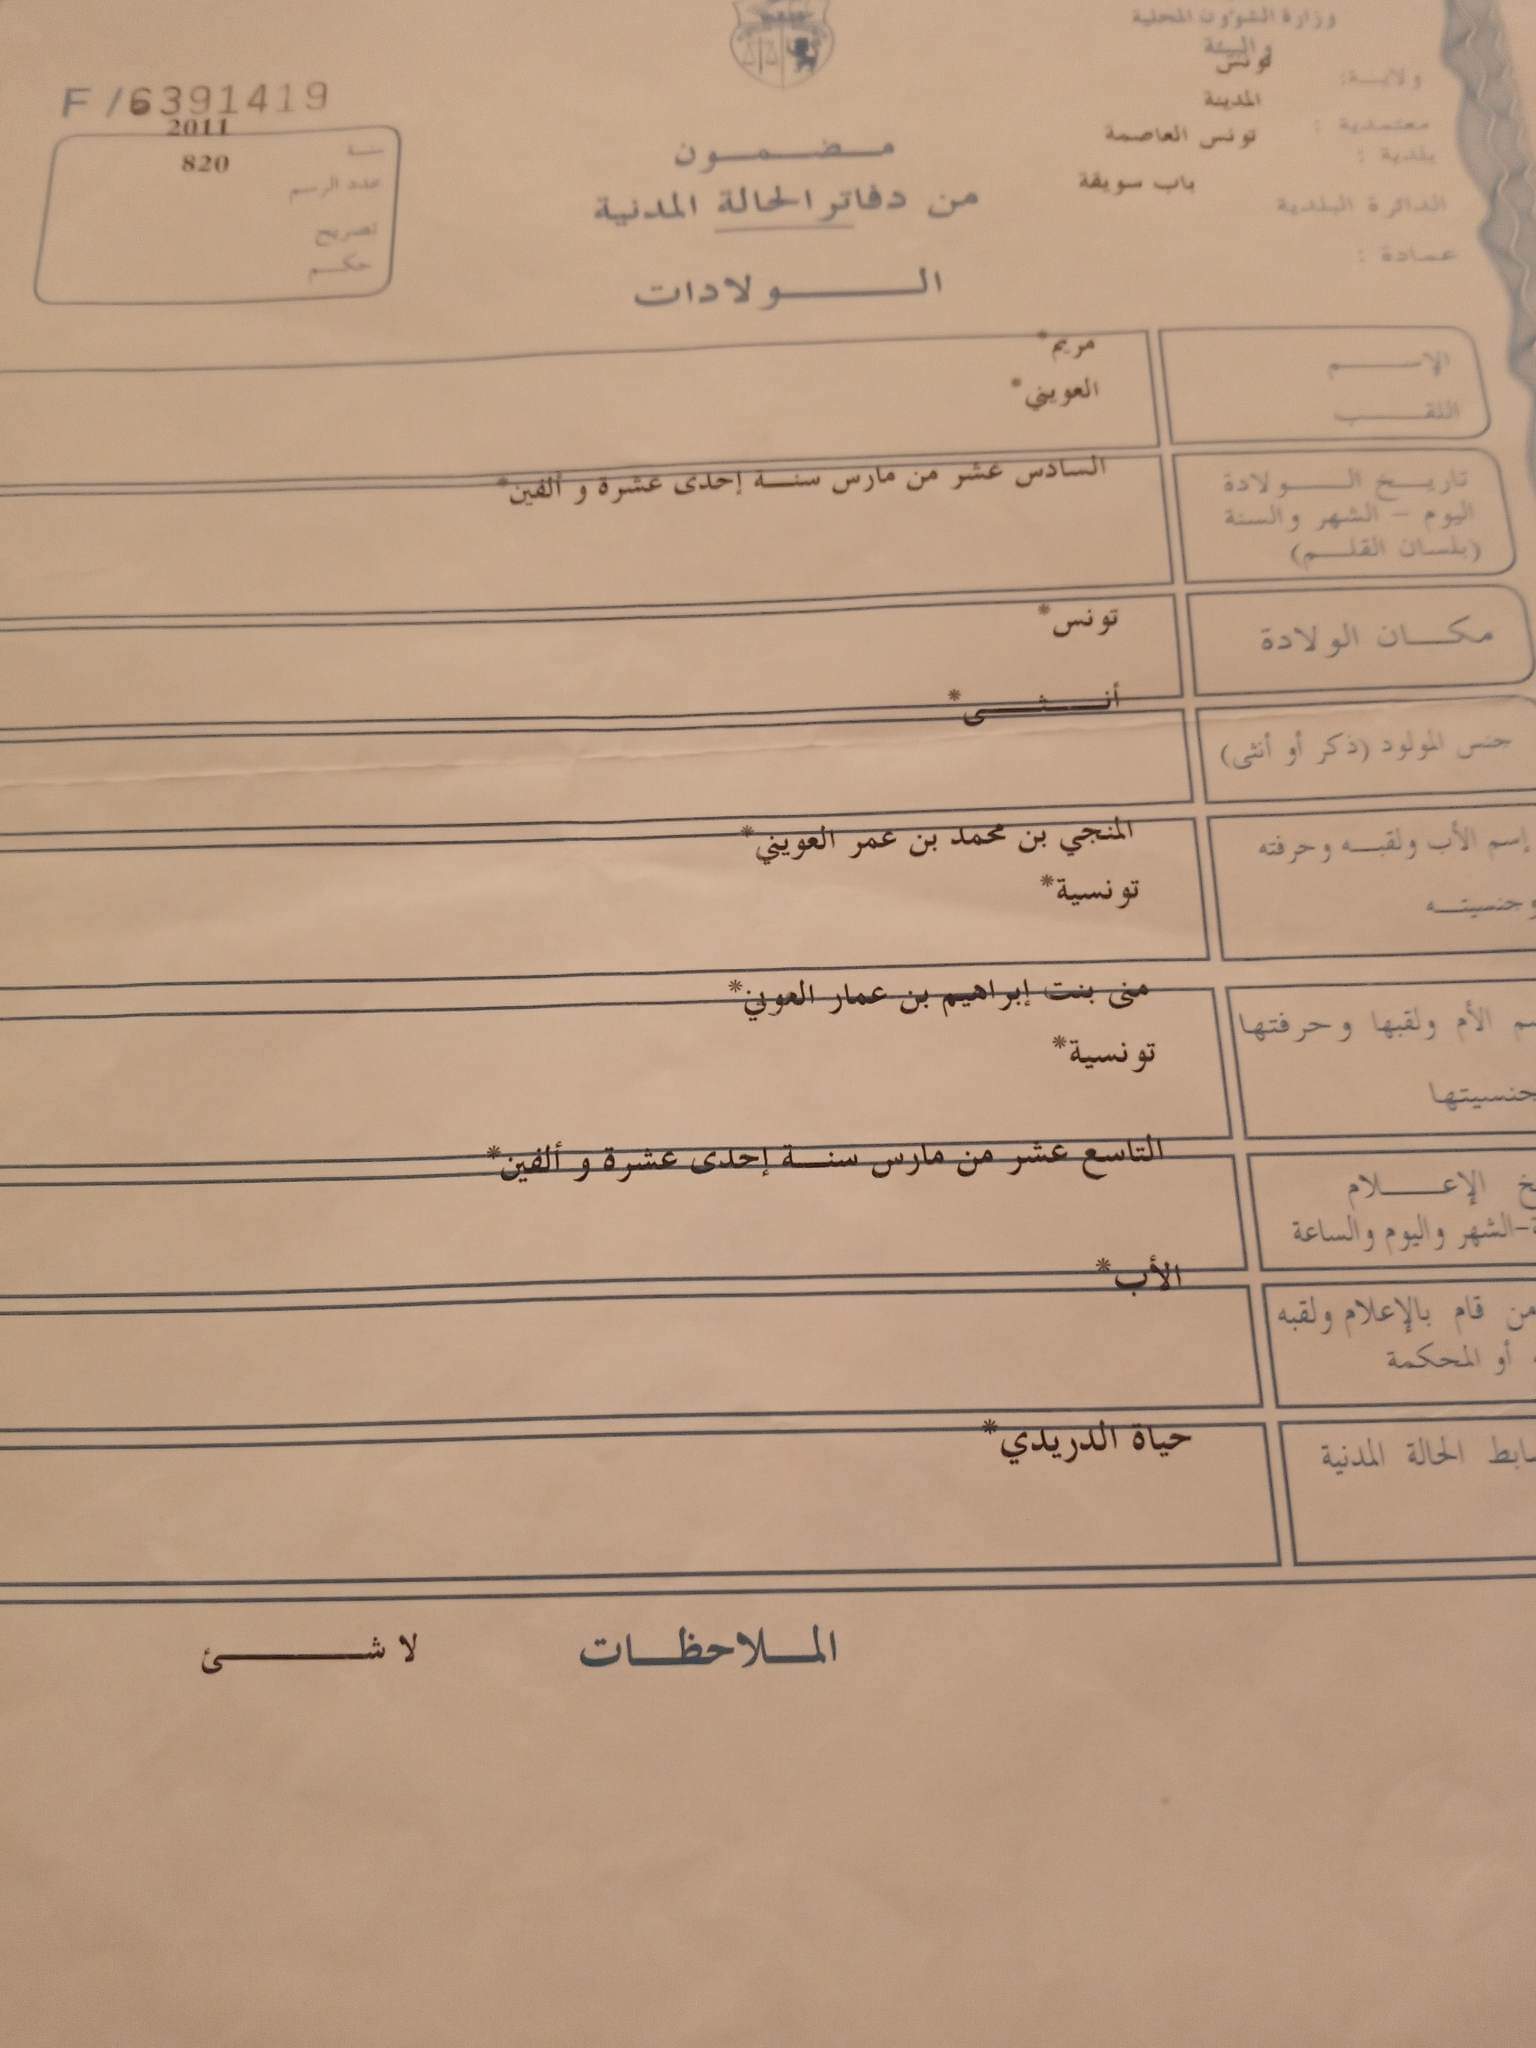 وزارة الشؤون المحلية
والبيئة
ولاية: تونس
معتمدية : المدينة
بلدية : تونس العاصمة
الدائرة البلدية باب سويقة
عمادة :
F /6391419
سنة 2011
عدد الرسم 820
تصريح
حكم
مضمون
من دفاتر الحالة المدنية
الولادات
الإسم مريم*
اللقب العويني*
تاريخ الولادة السادس عشر من مارس سنة إحدى عشرة و ألفين*
اليوم - الشهر والسنة
(بلسان القلم)
مكان الولادة تونس*
جنس المولود (ذكر أو أنثى) أنثى*
إسم الأب ولقبه وحرفته المنجي بن محمد بن عمر العويني*
وجنسيته تونسية*
الأم ولقبها وحرفتها منى بنت إبراهيم بن عمار العوني*
جنسيتها تونسية*
الإعلام التاسع عشر من مارس سنة إحدى عشرة و ألفين*
-الشهر واليوم والساعة
من قام بالإعلام ولقبه الأب*
أو المحكمة
الحالة المدنية حياة الدريدي*
الملاحظات لا شئ